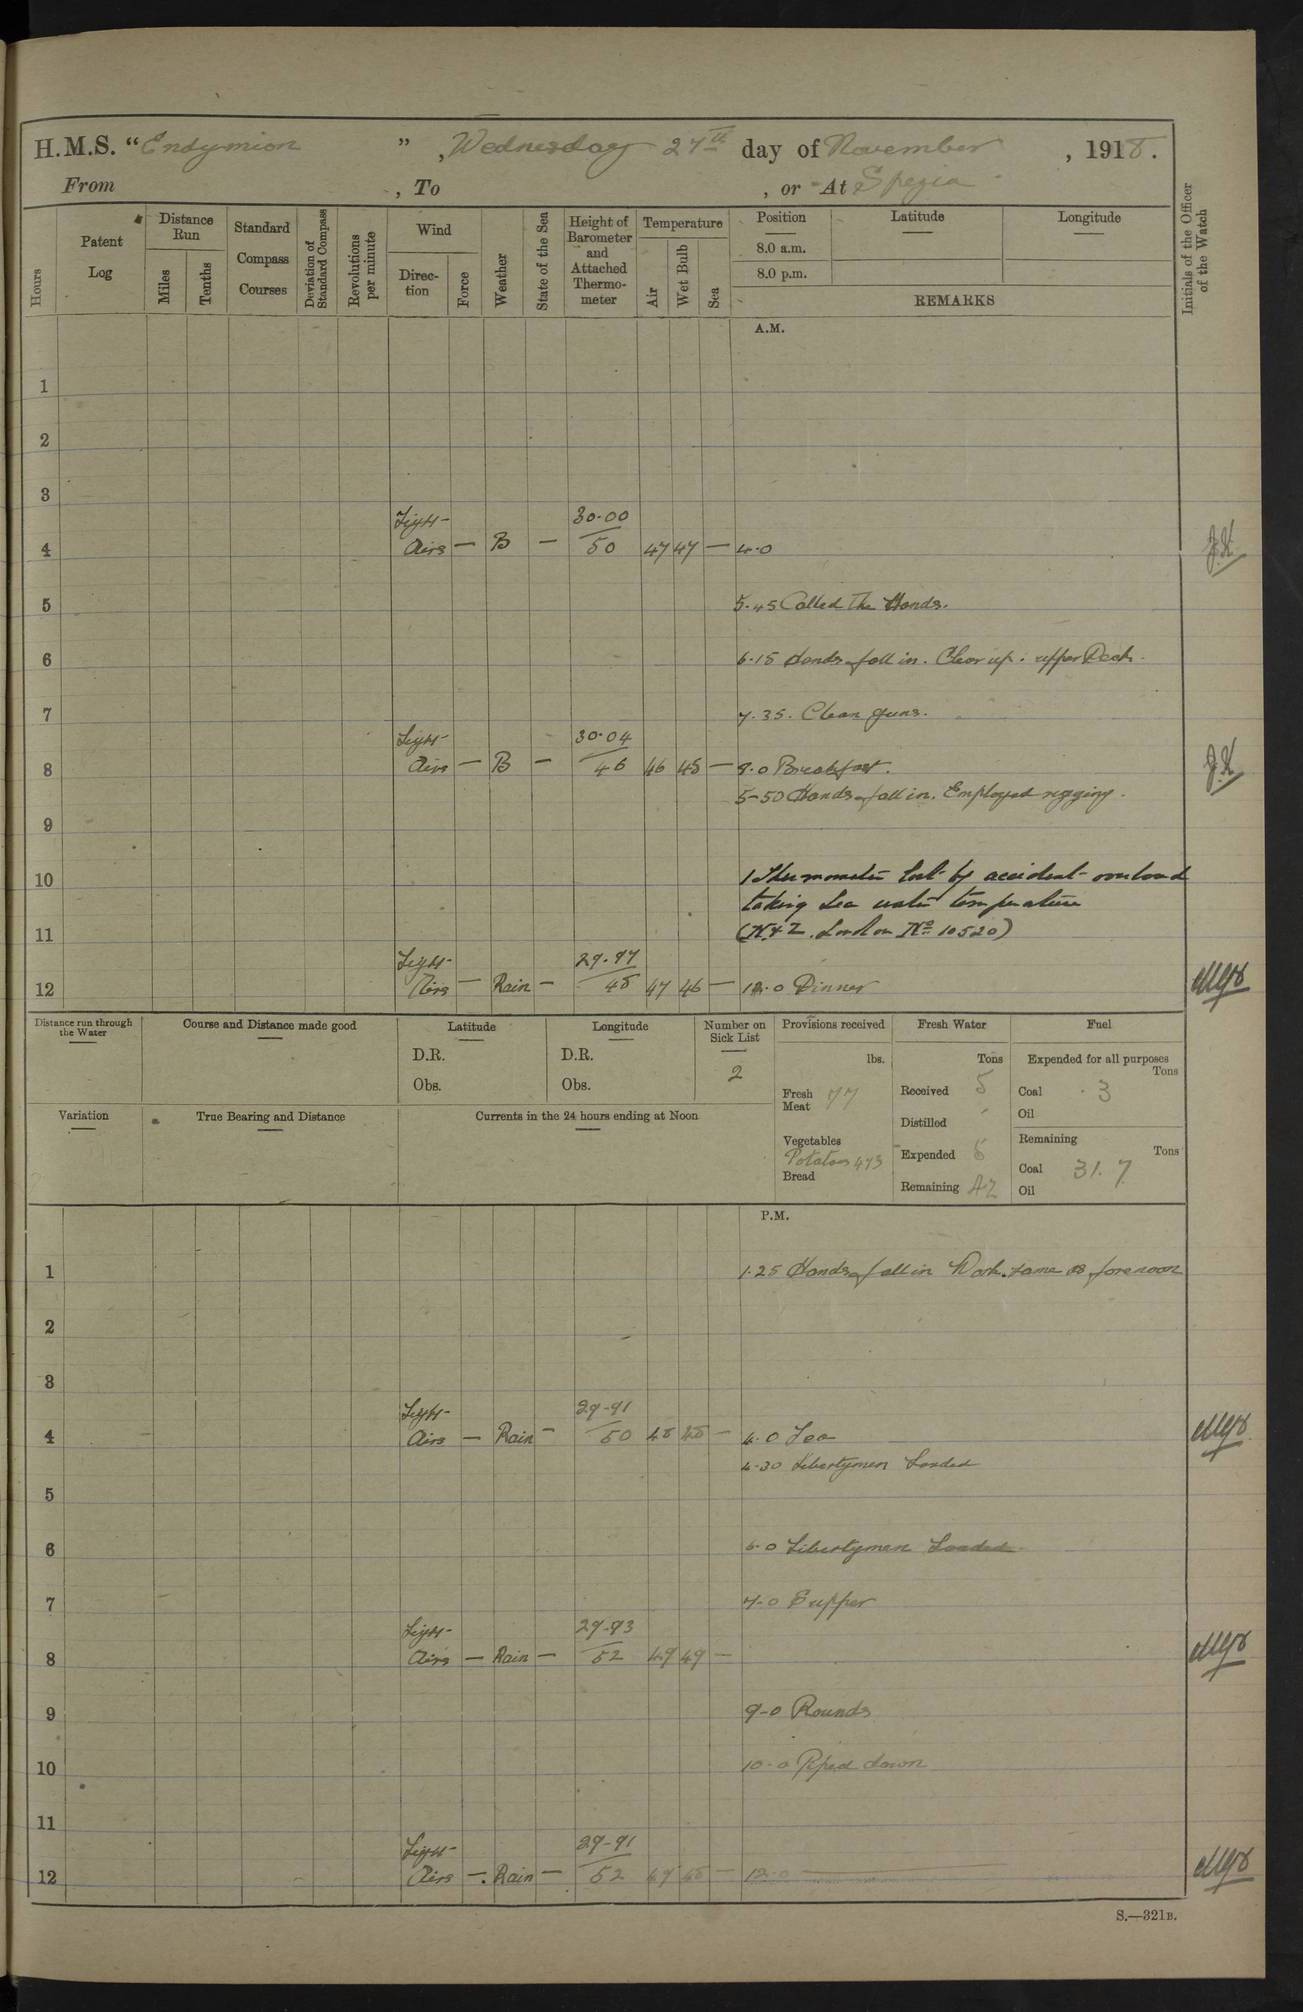 H.M.S. "Endymion", Wednesday 27th day of November, 1918.
From , To , or At Spezia
Hours
Patent Log
Distance Run
Miles
Tenths
Standard Compass Courses
Deviation of Standard Compass
Revolutions per minute
Wind
Direction
Force
Weather
State of the Sea
Height of Barometer and Attached Thermometer
Temperature
Air
Wet Bulb
Sea
Position
8.0 a.m.
8.0 p.m.
Latitude
Longitude
REMARKS
Initials of the Officer of the Watch
A.M.
1
2
3
Light 30.00
4 Airs — B — 50 47 47 — 4.0 J.K.
5 5.45 Called the Hands.
6 6.15 Hands fall in. Clear up. upper Deck.
7 7.35. Clean guns.
Light 30.04
8 Airs — B — 46 46 45 — 8.0 Breakfast. J.K.
5-50 Hands fall in. Employed rigging.
9
10 1 Thermometer lost by accident overboard
taking sea water temperature
11 (N & Z. London No 10520)
Light 29.97
12 Airs — Rain — 48 47 46 — 12.0 Dinner
Distance run through the Water
Course and Distance made good
Latitude
D.R.
Obs.
Longitude
D.R.
Obs.
Number on Sick List
2
Provisions received
lbs.
Fresh Meat 77
Vegetables
Potatoes 473
Bread
Fresh Water
Tons
Received 5
Distilled
Expended 5
Remaining 42
Fuel
Expended for all purposes
Tons
Coal .3
Oil
Remaining
Tons
Coal 31.7
Oil
Variation
True Bearing and Distance
Currents in the 24 hours ending at Noon
P.M.
1 1.25 Hands fall in Work same as forenoon
2
3
Light 29-91
4 Airs — Rain — 50 48 48 — 4.0 Tea
4.30 Libertymen Landed
5
6 6.0 Libertymen Landed
7 7.0 Supper
Light 29-93
8 Airs — Rain — 52 49 49 —
9 9-0 Rounds
10 10.0 Piped down
11
Light 29-91
12 Airs — Rain — 52 49 48 — 12.0
S.—321B.